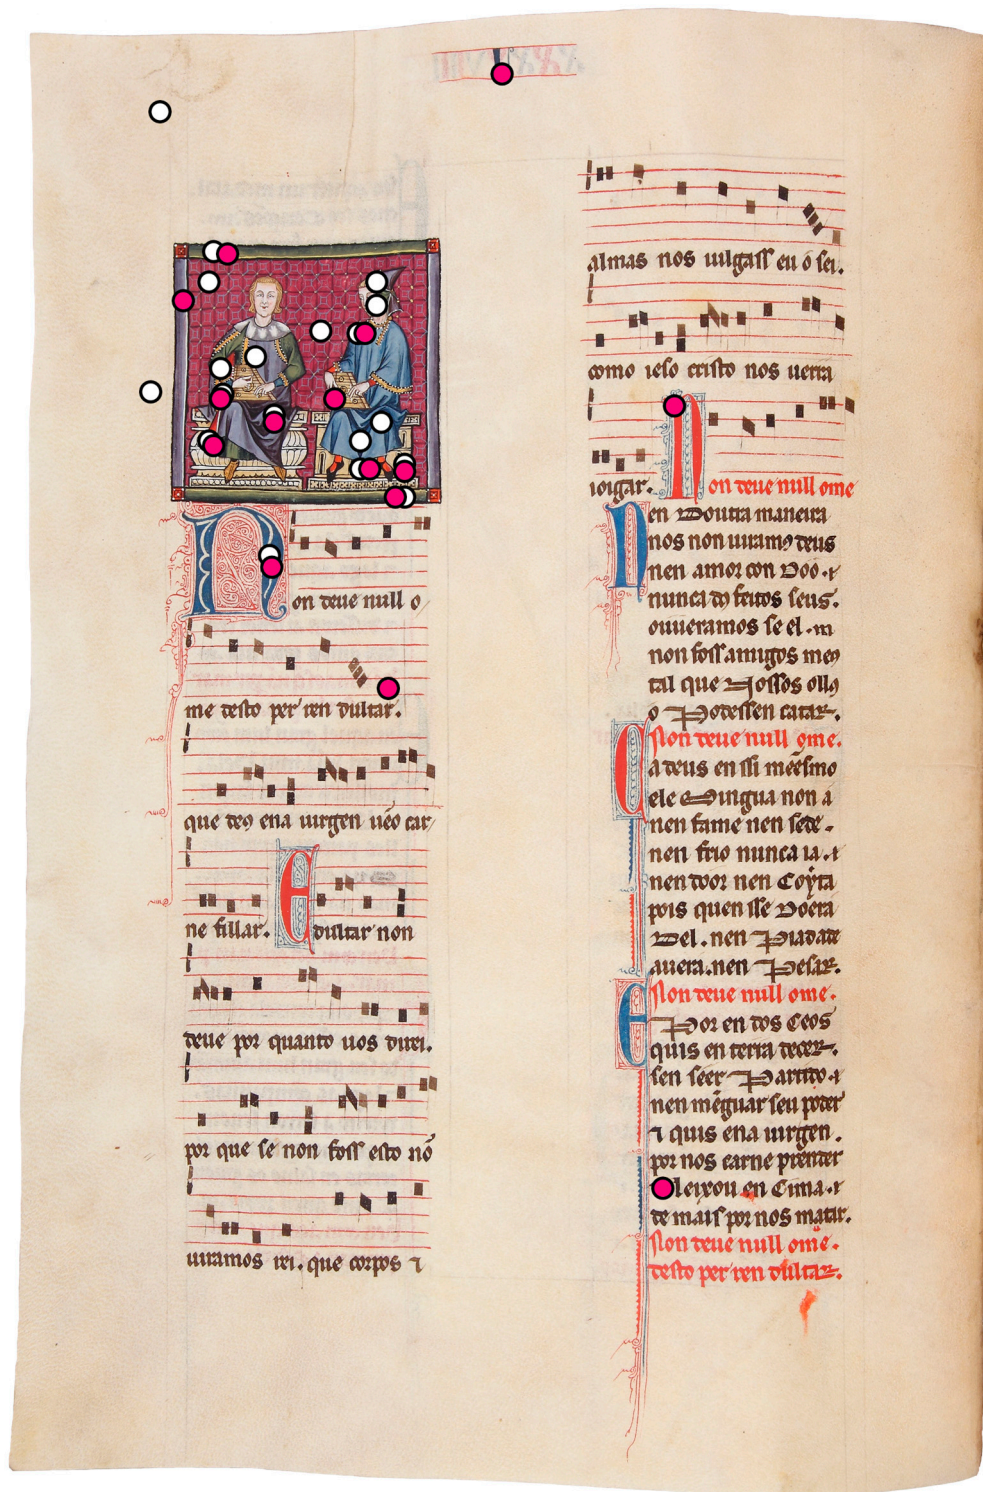 on deue null o
me desto per ren dultar.
que deꝯ ena uirgen uẽo car
ne fillar. E dultar non
deue por quanto uos direi.
por que se non foss esto nõ
uiramos rei. que corpos ⁊
almas nos iulgass eu o sei.
como ieso cristo nos uerra
ioigar. on deue null ome
Nen Doutra maneira
nos non uiramꝯ deus
nen amor con Doo. ⁊
nunca dꝯ feitos seus.
ouueramos se el. m
non foss amigos meꝯ
tal que Nossos ollꝯ
o Podessen catar.
Non deue null ome.
Ca deus en ssi meesmo
ele Mingua non a
nen fame nen sede.
nen frio nunca ia. ⁊
nen door nen Coyta
pois quen sse Doera
Del. nen Piadade
auera. nen Pesar.
Non deue null ome.
E Por en dos Ceos
quis en terra decer.
sen seer Partido. ⁊
nen mẽguar seu poder
⁊ quis ena uirgen.
por nos carne prender
leixou en Cima. ⁊
de mais por nos matar.
Non deue null ome.
desto per ren dultar.